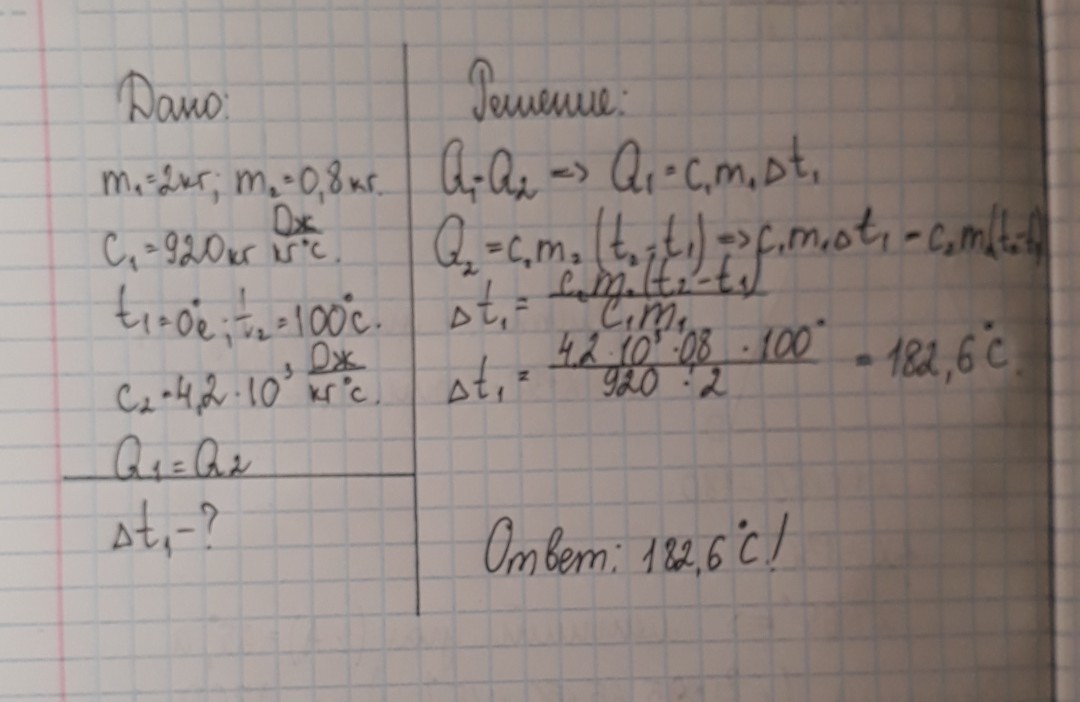 Дано:
m₁=2кг; m₂=0,8кг.
c₁=920кг Дж/кг°c.
t₁=0°c; t₂=100°c.
c₂=4,2·10³ Дж/кг°c.
Q₁=Q₂
Δt₁-?
Решение:
Q₁=Q₂ => Q₁=c₁m₁Δt₁
Q₂=c₂m₂(t₂-t₁) => c₁m₁Δt₁=c₂m₂(t₂-t₁)
Δt₁= c₂m₂(t₂-t₁)/c₁m₁
Δt₁= 4,2·10³·08·100°/920·2 = 182,6°c.
Ответ: 182,6°c!